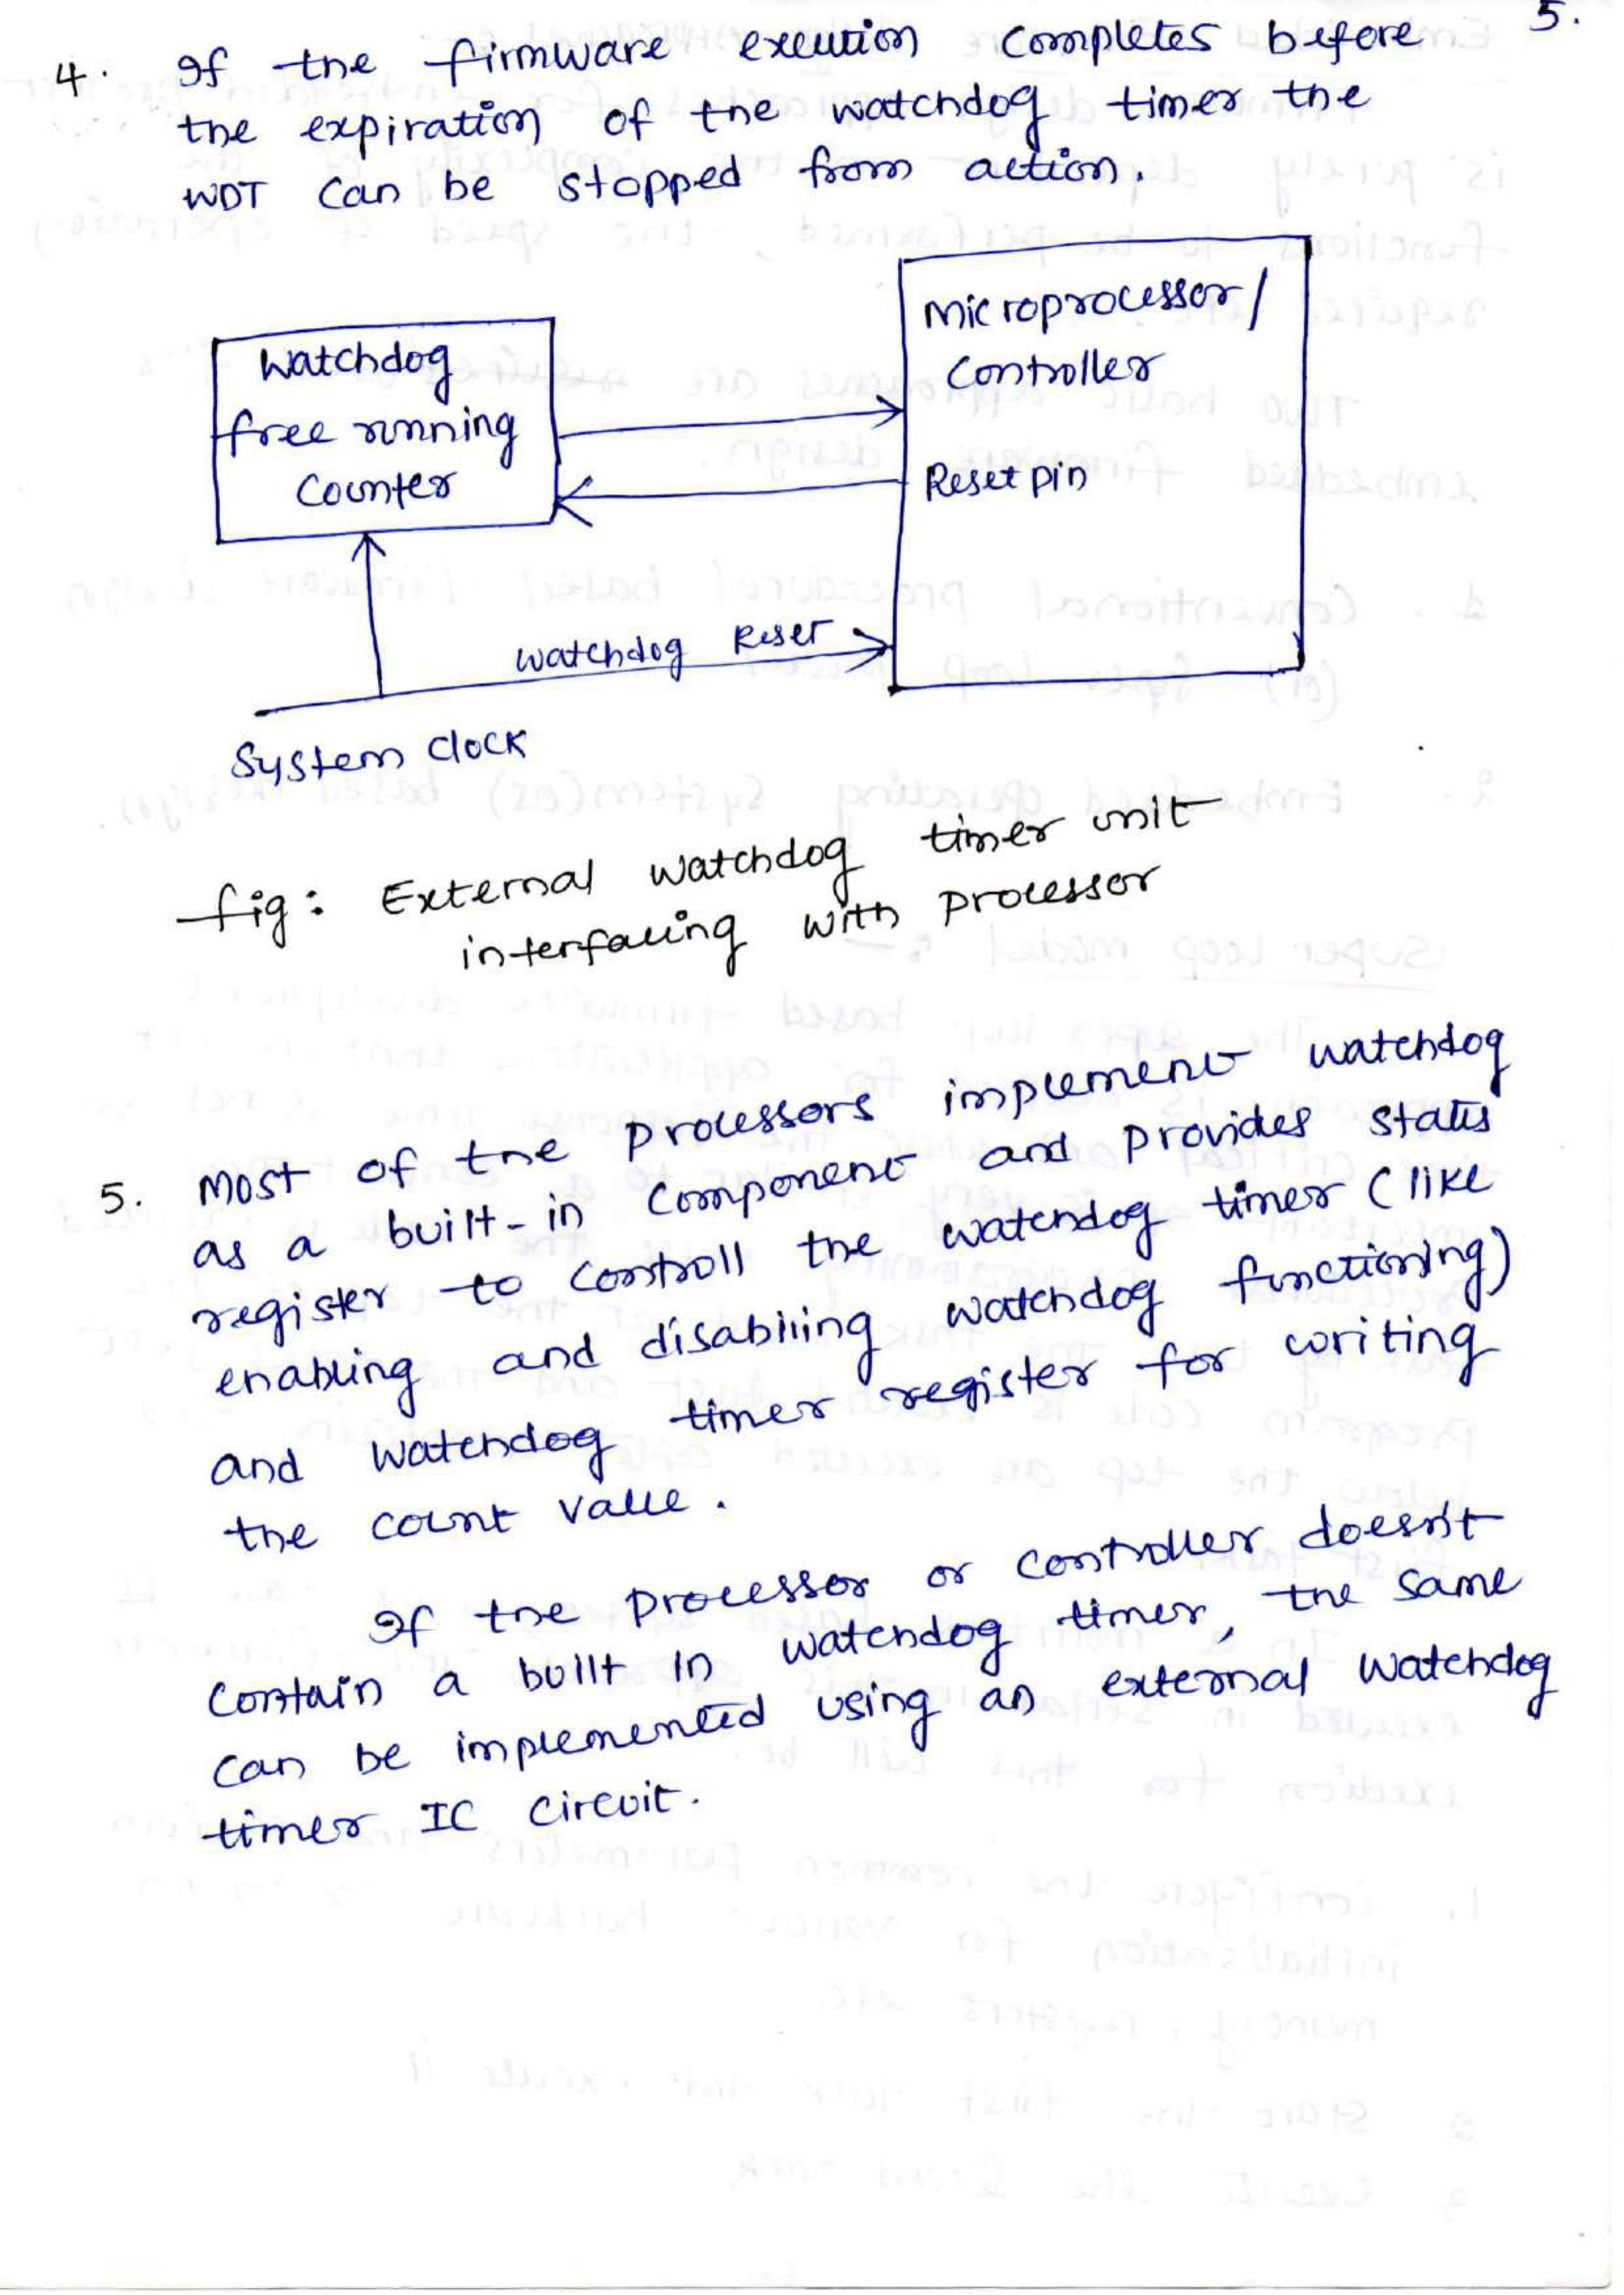 5.
4. If the firmware exeution completes before
the expiration of the watchdog timer the
WDT can be stopped from action.
Microprocessor/
Controller
Watchdog
free running
Counter
Reset pin
Watchdog Reset
System Clock
fig: External watchdog timer unit
interfacing with processor
5. Most of the processors implement watchdog
as a built-in component and provides status
register to controll the watchdog timer (like
enabling and disabling watchdog functioning)
and watchdog timer register for writing
the count value.
If the processor or controller doesn't
contain a built in watchdog timer, the same
can be implemented using an external watchdog
timer IC circuit.